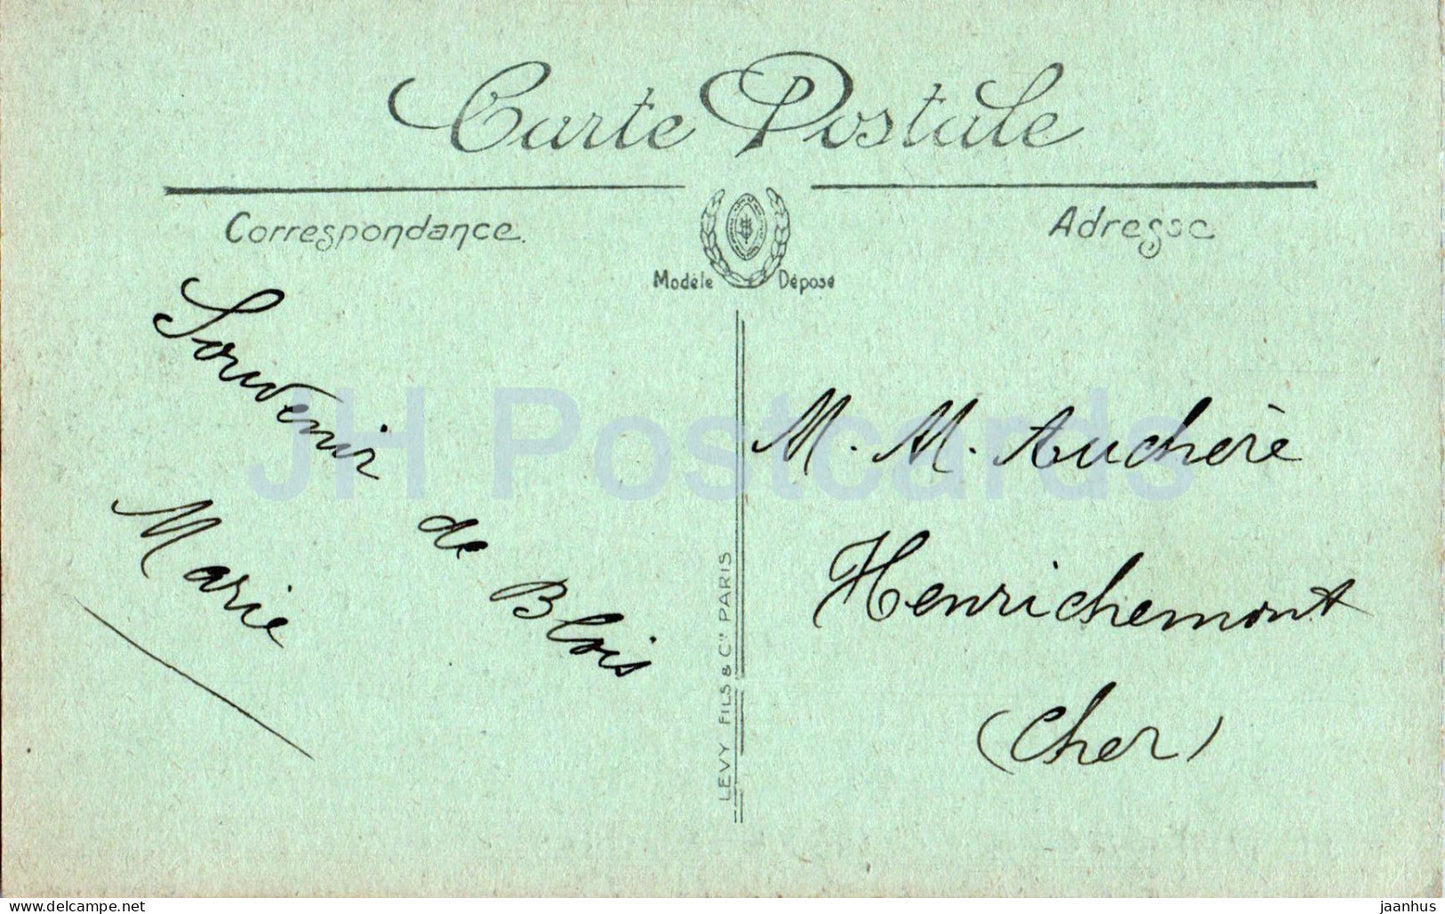 Carte Postale
Correspondance.
Adresse
Modèle Déposé
Souvenir de Blois
Marie
M. M. Auchère
Henrichemont
(Cher)
LEVY FILS & Cie PARIS
JH Postcards
www.delcampe.net
jaanhus